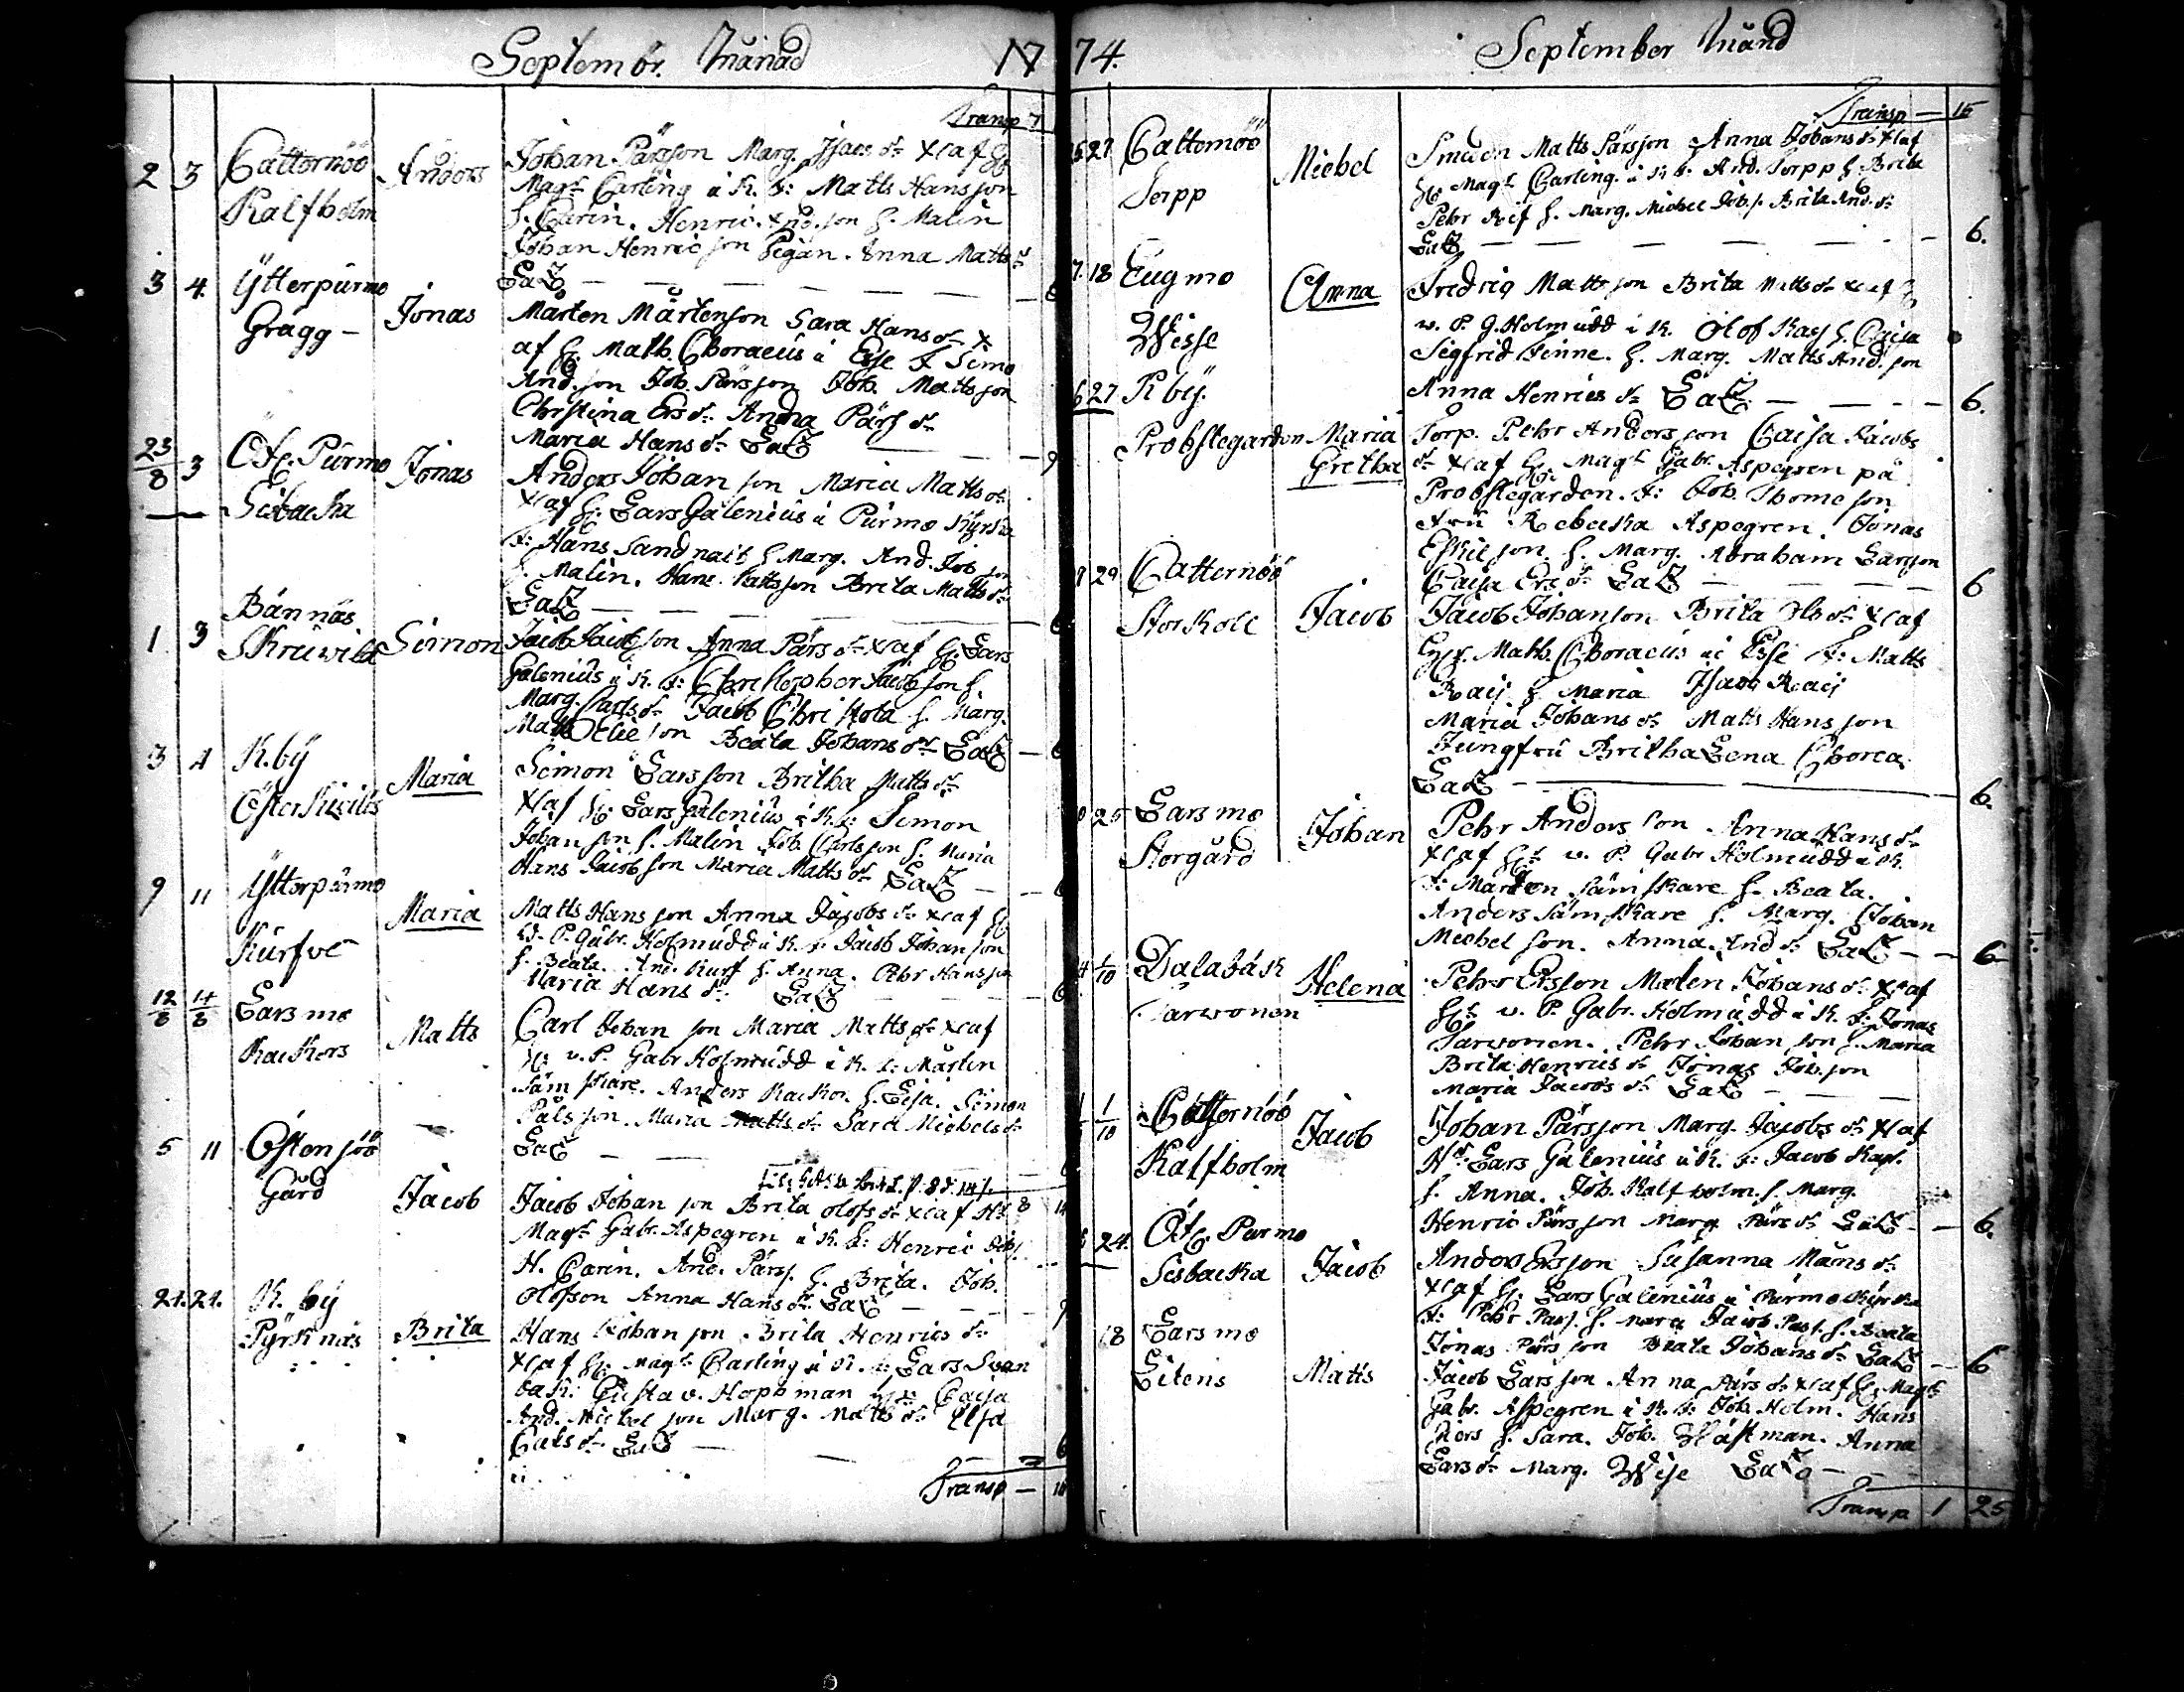 Septembr. Månad 17
Transp 7
2 3 Catternöö Anders Johan Pärsson Marg. Isacs dr Xtaf H
Kalfholm Magr Carling i K. F: Matts Hansson
h. Carin. Henric And.son h. Malin
Johan Henricson Pigan. Anna Matts dr
LaZ — — — — — 6
3 4. Ytterpurmo Jonas Mårten Mårtenson Sara Hans dr X
Grägg – af H. Math. Choraeus i Esse F Simo
And.son Joh. Pärsson Joh. Mattsson
Christina Ers dr Anna Pärs dr
Maria Hans dr LaZ — 9
23/8 3 Öf. Purmo Jonas Anders Johanson Maria Matts dr
Sisbacka Xtaf H. Lars Galenius i Purmo Kyrka
F: Hans Sandnäs h Marg. And. Joh son
h. Malin. Hans Mattsson Brita Matts dr
LaZ — — — 6
Bännäs
1 3 Skruvila Simon Jacob Jacobson Anna Pärs dr Xtaf H. Lars
Galenius i K. F: Christopher Jacobson h.
Marg. Carls dr Jacob Christola h. Marg.
Matts Elieson Beata Johans dr LaZ — 6
3 4 K.by Maria Simon Larsson Britha Matts dr
Österkivilös Xtaf H. Lars Galenius i K. F: Simon
Johanson h. Malin Joh. Carlsson h. Maria
Hans Jacobson Maria Matts dr LaZ — 6
9 11 Ytterpurmo Maria Matts Hansson Anna Jacobs dr Xtaf H
Kurfve v. P. Gabr. Holmudd i K. F: Jacob Johanson
h. Beata. And. Kurf h. Anna. Pehr Hansson
Maria Hans dr LaZ — — — 6
12/8 14/8 Larsmo Matts Carl Johanson Maria Matts dr Xtaf
Kackors H v. P. Gabr Holmudd i K. F: Mårten
Sämskare. Anders Kackor h. Lisa. Simon
Pålsson. Maria Matts dr Sara Michels dr
LaZ — — 6
5 11 Östensöö Jacob Jacob Johanson Brita Olofs dr Xtaf Hr 8 14
Gård Magr Gabr. Aspegren i K. F: Henric Joh.
H. Carin. And. Pärss. h. Brita. Joh.
Olofson Anna Hans dr LaZ — — — 9
21. 21. K. by Brita Hans Johanson Brita Henrics dr
Pyrknäs Xtaf H: Magr Carling i K. F: Lars Svan
bäk: Gustav. Hoppman Caisa
And. Michelson Marg. Matts dr Elsa
Carls dr LaZ — — 6
Transp —
74. September Månd
Transp — 15
27 Catternöö Michel Smeden Matts Pärsson Anna Johans dr Xtaf
Torpp H Magr Carling. i K F: And. Torpp h. Brita
Pehr Reif h. Marg. Michel Joh.s. Brita And. dr
LaZ — — — — — 6.
7. 18 Eugmo Anna Fredrig Mattsson Brita Matts dr Xtaf H
Wisse v. P. G. Holmudd i K. Olof Kass h. Caisa
Segfrid Finne. h. Marg. Matts And.son
6 27 K by. Anna Henrics dr LaZ — — — 6.
Probstegarden Maria Torp. Pehr Andersson Caisa Jacobs
Gretha dr Xtaf H. Magr Gabr. Aspegren på
Probstegarden. F: Joh. Thomeson
Fru Rebecka Aspegren. Jonas
Eskilson h. Marg. Abraham Larsson
Caisa Ers dr LaZ — — — — 6
29 Catternöö Jacob Jacob Johanson Brita Ols dr Xtaf
Storkole H. Math. Choraeus i Esse F: Matts
Racij h Maria Isaac Racij
Maria Johans dr Matts Hansson
Jungfru Britha Lena Chorea.
LaZ — 6.
25 Larsmo Johan Pehr Andersson Anna Hans dr
Storgård Xtaf Hr v. P. Gabr Holmudd i K.
F: Mårten Sämskare h. Beata.
Anders Sämskare h. Marg. Johan
Michelson. Anna. And dr LaZ — — 6
1/10 Dalabäk Helena Pehr Ersson Malen Johans dr Xtaf
Tarvonen Hr v. P. Gabr. Holmudd i K. F: Jonas
Tarvonen. Pehr Johanson h. Maria
Brita Henrics dr Jonas Joh.son
Maria Jacobs dr LaZ — — —
1/10 Catternöö Jacob Johan Pärsson Marg. Jacobs dr Xtaf
Kalfholm Hr Lars Galenius i K. F: Jacob Kapl.
h. Anna. Joh. Kalfholm. h. Marg.
Henric Pärsson Marg. Pärs dr LaZ — — 6.
24. Öf. Purmo Jacob Anders Ersson Susanna Måns dr
Sisbacka Xtaf H. Lars Galenius i Purmo Kyrka
F: Pehr Pärs. h. Maria Jacob Pärs. h. Beata
Jonas Pärsson Beata Johans dr LaZ — 6
18 Larsmo Matts Jacob Larsson Anna Pärs dr Xtaf H. Magr
Eilens Gabr. Aspegren i K. F: Joh. Holm. Hans
Riors h. Sara. Joh. Wästman. Anna
Lars dr Marg. Wise LaZ —
Transp 1 25